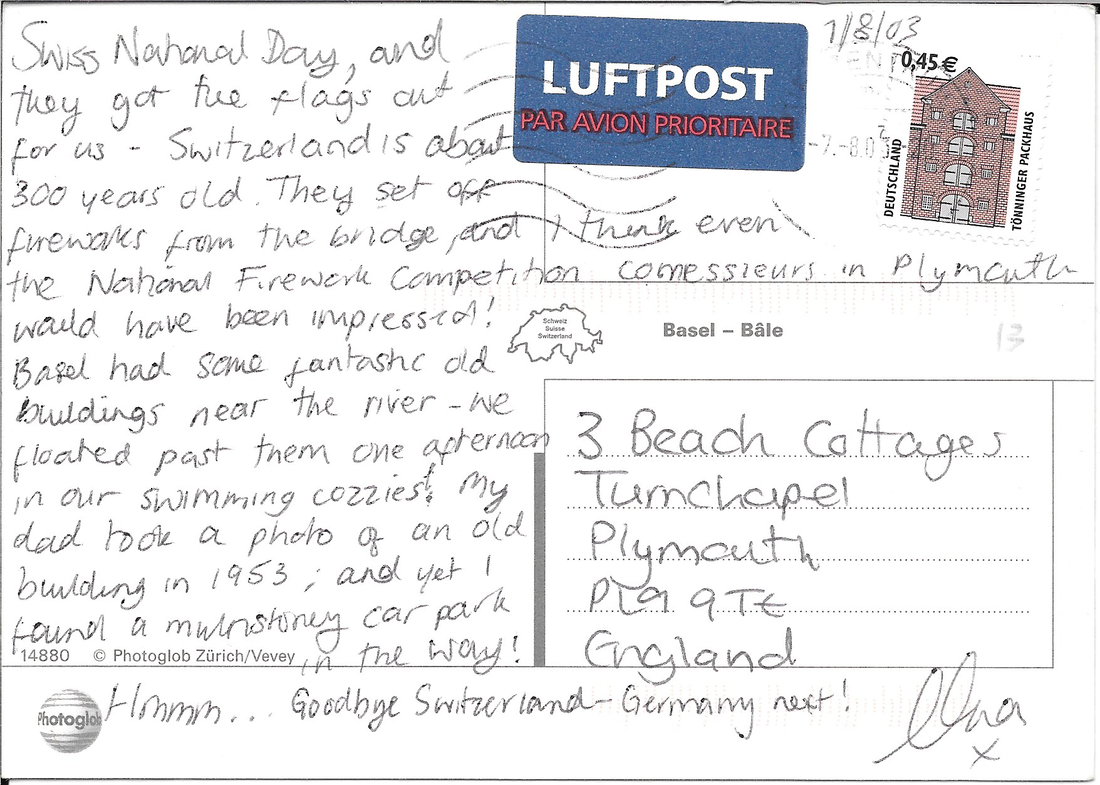 1/8/03
Swiss National Day, and
they got the flags out
for us - Switzerland is about
300 years old. They set off
fireworks from the bridge, and I think even
the National Firework Competition comessieurs in Plymouth
would have been impressed!
Basel had some fantastic old
buildings near the river - we
floated past them one afternoon
in our swimming cozzies! My
dad took a photo of an old
building in 1953; and yet I
found a multistorey car park
in the way!
Hmmm... Goodbye Switzerland - Germany next!
x
LUFTPOST
PAR AVION PRIORITAIRE
0,45 €
DEUTSCHLAND
TÖNNINGER PACKHAUS
-7.-8.03
Schweiz
Suisse
Switzerland
Basel – Bâle
13
3 Beach Cottages
Turnchapel
Plymouth
PL9 9TE
England
14880 © Photoglob Zürich/Vevey
Photoglob